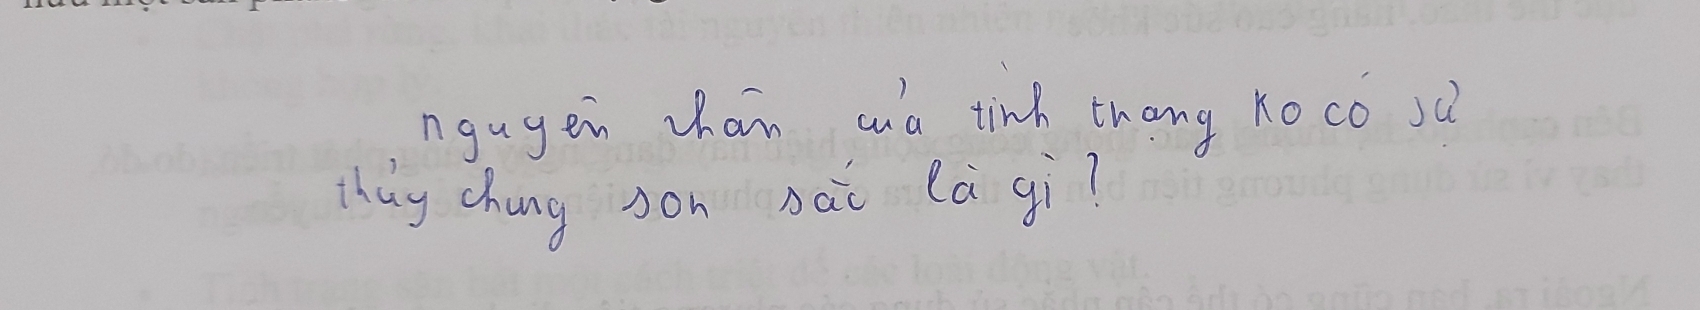 nguyên nhân của tình trạng ko có sự
thủy chung son sắc là gì?